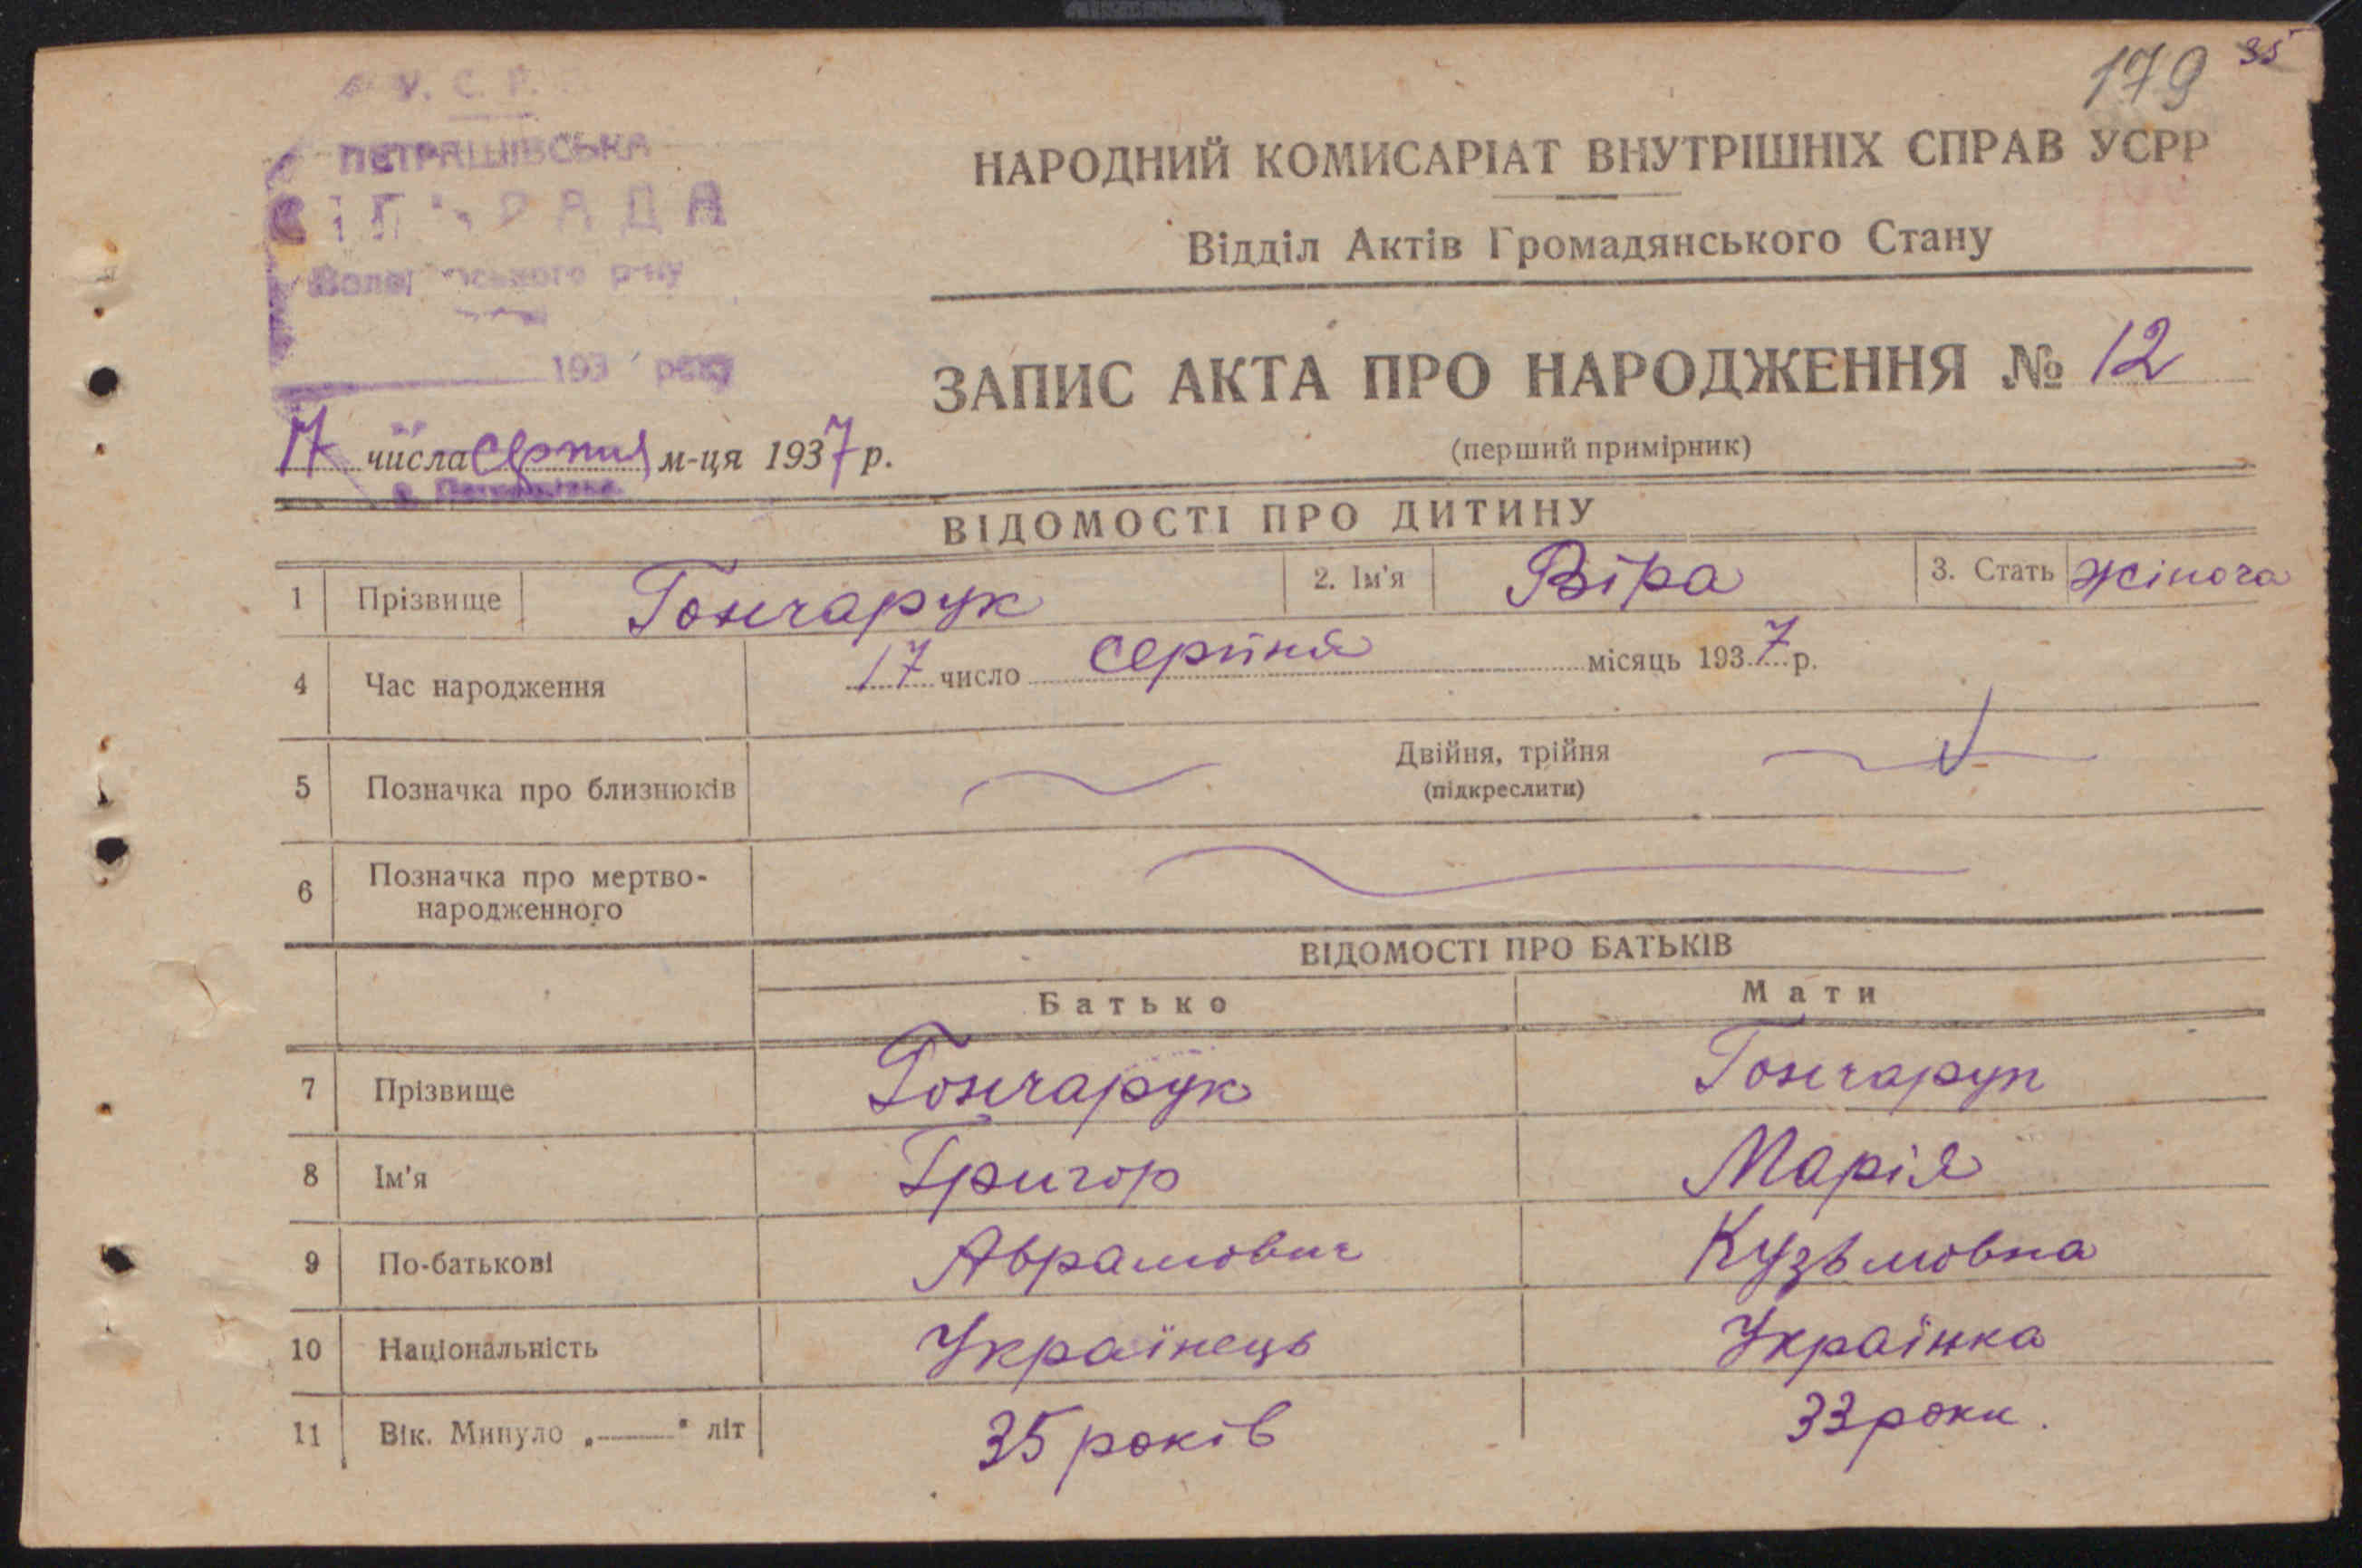 179 35
У. С. Р. Р.
ПЕТРАШІВСЬКА
СІЛЬРАДА
р-ну
193 року
НАРОДНИЙ КОМИСАРІАТ ВНУТРІШНІХ СПРАВ УСРР
Відділ Актів Громадянського Стану
ЗАПИС АКТА ПРО НАРОДЖЕННЯ № 12
(перший примірник)
17 числа серпня м-ця 1937 р.
ВІДОМОСТІ ПРО ДИТИНУ
1 Прізвище Гончарук 2. Ім'я Віра 3. Стать жіноча
4 Час народження 17 число серпня місяць 1937 р.
5 Позначка про близнюків Двійня, трійня
(підкреслити)
6 Позначка про мертво-
народженного
ВІДОМОСТІ ПРО БАТЬКІВ
Батько Мати
7 Прізвище Гончарук Гончарук
8 Ім'я Григор Марія
9 По-батькові Аврамович Кузьмовна
10 Національність Українець Українка
11 Вік. Минуло „——" літ 35 років 33 роки.